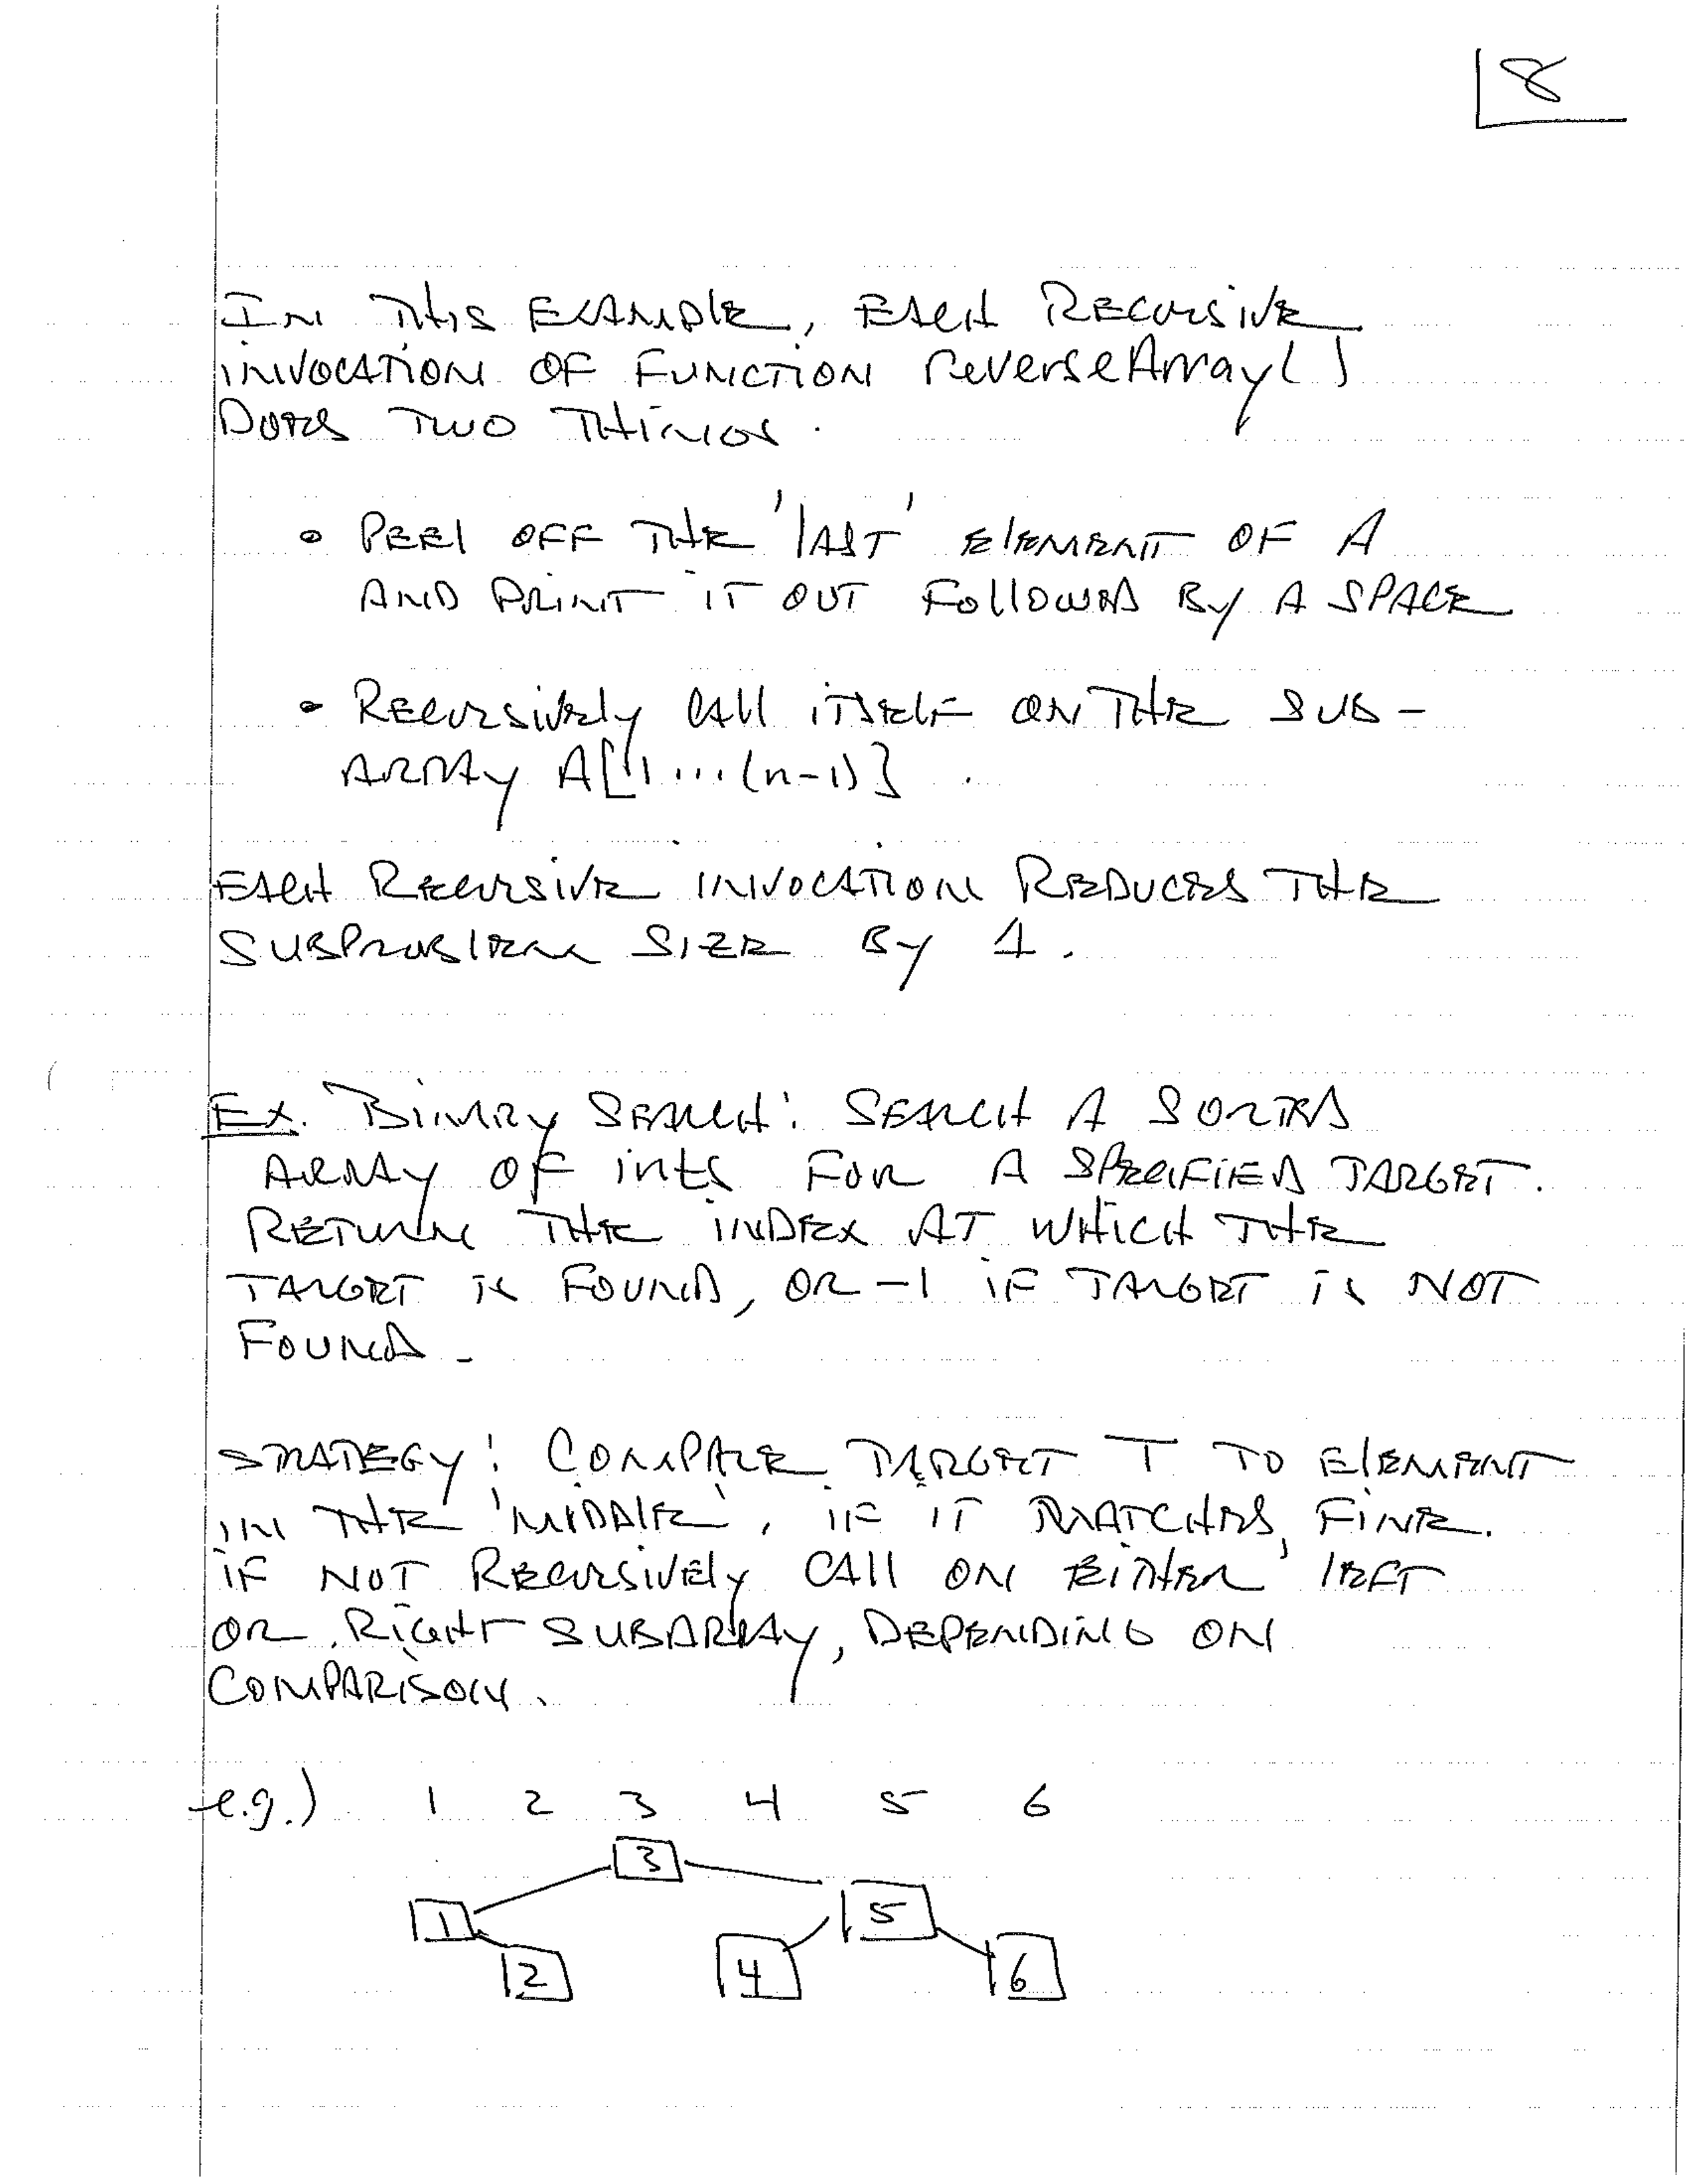 8
In This Example, Each Recursive
invocation of Function reverseArray()
Does Two Things.
• Peel off the 'last' element of A
and print it out followed by a space
• Recursively call itself on the sub-
array A[1...(n-1)]
Each Recursive invocation Reduces the
subproblem size by 1.
Ex. Binary Search: Search a sorted
array of ints for a specified target.
Return the index at which the
target is found, or -1 if target is not
found.
Strategy: Compare target T to element
in the 'middle', if it matches, fine.
if not Recursively call on either left
or Right subarray, Depending on
Comparison.
e.g.) 1 2 3 4 5 6
3
1 5
2 4 6